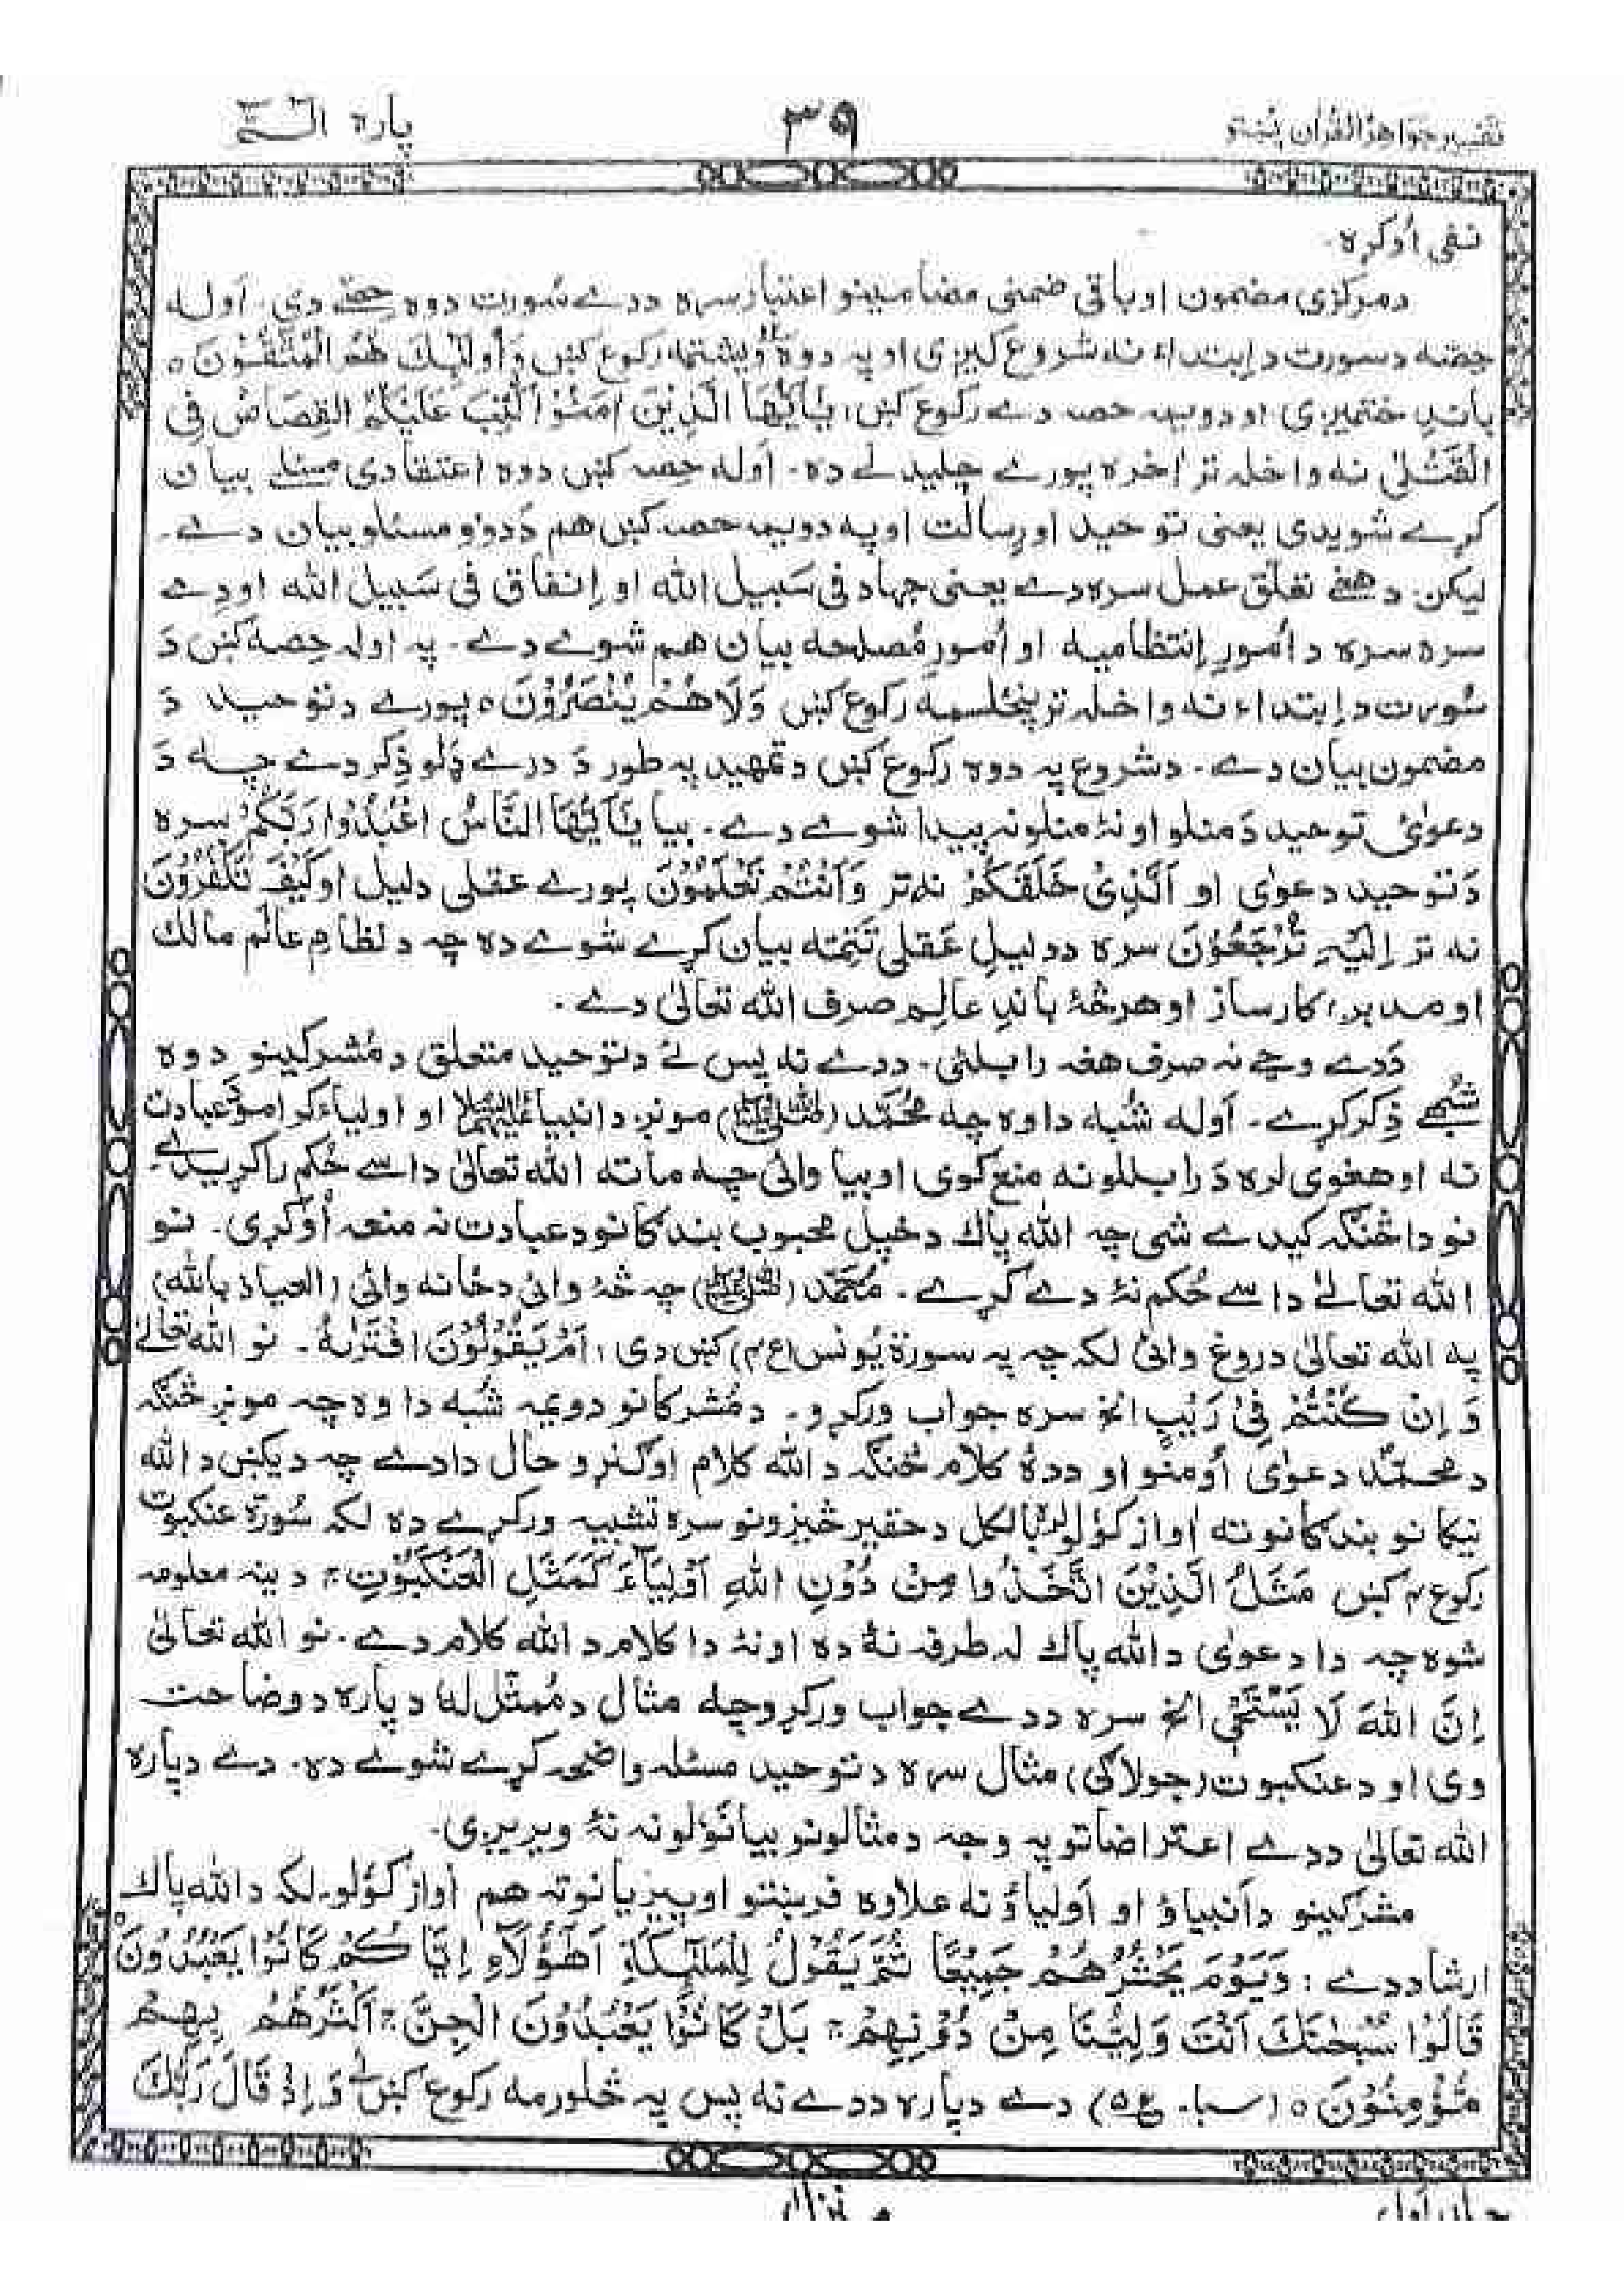 تفسير جواهرُالقُرآن پُښتو
٣٩
پاره الٓـمّٓ
نفي اُوکړه.
دمرکزي مضمون او باقي ضمني مضامينو اعتبار سره ددے سُورت دوه حِصّے دي. اَوله
حِصّه دسورت دابتداء نه شروع کيږي او په دوه ويشتمه رکوع کښ وَاُولٰٓئِكَ هُمُ الْمُتَّقُوْنَ ٥
باندِ ختميږي او دويمه حصه دے رکوع کښ، يٰٓاَيُّهَا الَّذِيْنَ اٰمَنُوْا كُتِبَ عَلَيْكُمُ الْقِصَاصُ فِي
الْقَتْلٰى نه واخله تر اٰخره پورے چليدلے ده. اَوله حِصه کښ دوه اعتقادي مسئلے بيان
کړے شويدي يعني توحيد او رِسالت او په دويمه حصه کښ هم دَدوؤ مسئلو بيان دے.
ليکن دهغے تعلّق عمل سره دے يعني جهاد في سَبيل الله او اِنفاق في سَبيل الله او دے
سره سره د اُمورِ اِنتظاميه او اُمورِ مُصلحه بيان هم شوے دے. په اوله حِصه کښ دَ
سُورت دابتداء نه واخله تر پنځلسمه رکوع کښ وَلَا هُمْ يُنْصَرُوْنَ ٥ پورے دتوحيد دَ
مضمون بيان دے. دشروع په دوه رکوع کښ دتمهيد په طور دَ درے ډلو ذِکر دے چه دَ
دعوٰئ توحيد دَ منلو او نۀ منلو نه پيدا شوے دے. بيا يٰٓاَيُّهَا النَّاسُ اعْبُدُوْا رَبَّكُمُ سره
دَ توحيد دعوٰى او اَلَّذِيْ خَلَقَكُمْ نه تر وَاَنْتُمْ تَعْلَمُوْنَ پورے عقلي دليل او كَيْفَ تَكْفُرُوْنَ
نه تر اِلَيْهِ تُرْجَعُوْنَ سره د دليلِ عَقلي تَتِمّه بيان کړے شوے ده چه د نظامِ عالَم مالك
او مدبر، کارساز او هر څۀ باندِ عالِم صرف الله تعالىٰ دے.
دَدے وجے نه صرف هغه رابلئ. ددے نه پس ئے دتوحيد متعلق دمُشرکينو دوه
شُبهے ذِکر کړے. اَوله شُبه دا وه چه مُحَمَّد (ﷺ) مونږ د انبياء عَلَيْهِمُ السَّلَام او اولياء کرامو دَ عبادت
نه او هغوي لره دَ رابللو نه منع کوي او بيا وائي چه ماته الله تعالىٰ داسے حُکم راکړيدے.
نو دا څنګه کيدے شي چه الله پاك دخپل محبوب بندګانو دعبادت نه منعه اُوکړي. نو
الله تعالىٰ داسے حُکم نۀ دے کړے. مُحَمَّد (ﷺ) چه څۀ وائي دځانه وائي (العياذ بالله)
په الله تعالىٰ دروغ وائي لکه چه په سورة يُونس (ع ٤) کښ دي، اَمْ يَقُوْلُوْنَ افْتَرٰىهُ. نو الله تعالىٰ
وَاِنْ كُنْتُمْ فِيْ رَيْبٍ الخ سره جواب ورکړو. دمُشرکانو دويمه شُبه دا وه چه مونږ څنګه
دمحمّد دعوٰى اُومنو او ددۀ کلام څنګه دالله کلام اوګنړو حال دادے چه ديکښ دالله
نيکانو بندګانو ته اٰواز کؤلو لره بالکل دحقير څيزونو سره تشبيه ورکړے ده لکه سُورة عنکبوت
رکوع ٤ کښ مَثَلُ الَّذِيْنَ اتَّخَذُوْا مِنْ دُوْنِ اللهِ اَوْلِيَآءَ كَمَثَلِ الْعَنْكَبُوْتِ: دينه معلومه
شوه چه دا دعوٰى دالله پاك له طرفه نۀ ده او نۀ دا کلام دالله کلام دے. نو الله تعالىٰ
اِنَّ اللهَ لَا يَسْتَحْيٖ الخ سره ددے جواب ورکړو چه مثال دمُمَثَّل لهٗ دپاره دوضاحت
وي او دعنکبوت (جولاګي) مثال سره دتوحيد مسئله واضحه کړے شوے ده. دے دپاره
الله تعالىٰ ددے اعتراضاتو په وجه دمثالونو بيانؤلو نه نۀ ويريږي.
مشرکينو دَانبياؤ او اَولياؤ نه علاوه فرښتو او پيريانو ته هم اٰواز کؤلو. لکه دالله پاك
ارشاد دے: وَيَوْمَ يَحْشُرُهُمْ جَمِيْعًا ثُمَّ يَقُوْلُ لِلْمَلٰٓئِكَةِ اَهٰٓؤُلَآءِ اِيَّاكُمْ كَانُوْا يَعْبُدُوْنَ ٥
قَالُوْا سُبْحٰنَكَ اَنْتَ وَلِيُّنَا مِنْ دُوْنِهِمْ: بَلْ كَانُوْا يَعْبُدُوْنَ الْجِنَّ: اَكْثَرُهُمْ بِهِمْ
مُّؤْمِنُوْنَ ٥ (سبا. ع ٥) دے دپاره ددے نه پس په څلورمه رکوع کښ ئے وَاِذْ قَالَ رَبُّكَ
جلد اَول
منزل ١